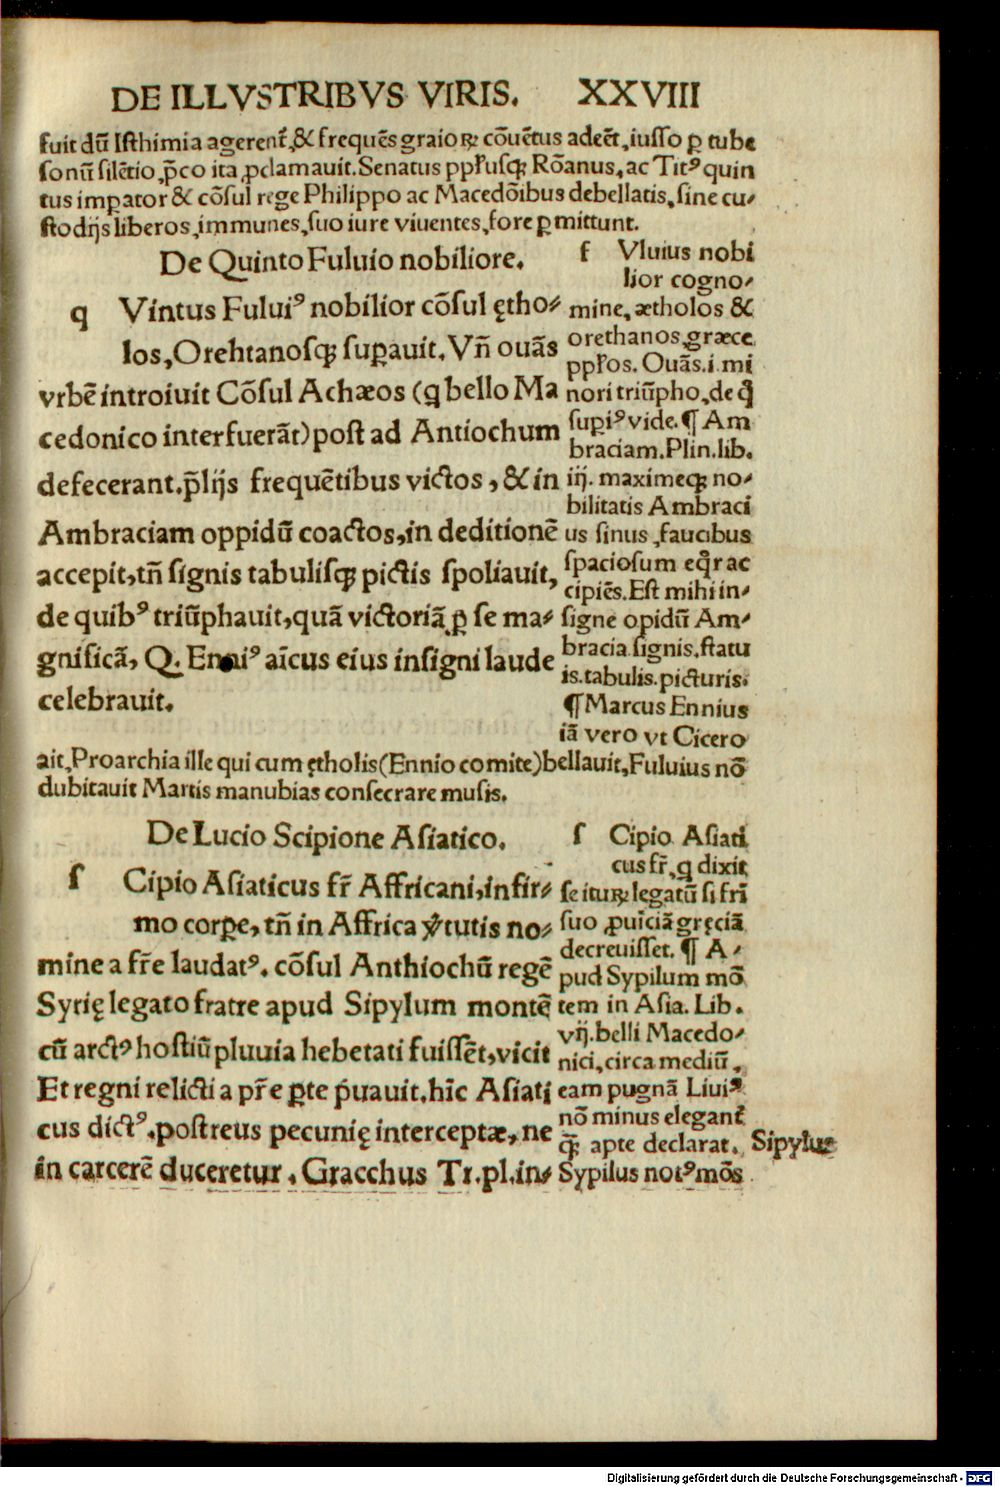 DE ILLVSTRIBVS VIRIS. XXVIII
fuit dũ Isthimia agerent᷑, & frequẽs graioꝝ cõuẽtus adeẽt, iusso ꝑ tube
sonũ silẽtio, p̃co ita ꝓclamauit. Senatus pp̃lusqꝫ Rõanus, ac Titꝰ quin
tus imꝑator & cõsul rege Philippo ac Macedõibus debellatis, sine cu⸗
stodijs liberos, immunes, suo iure viuentes, fore ꝑmittunt.
De Quinto Fuluio nobiliore.
q Vintus Fuluiꝰ nobilior cõsul ętho⸗
los, Orehtanosqꝫ suꝑauit. Vñ ouãs
vrbẽ introiuit Cõsul Achæos (q̇ bello Ma
cedonico interfuerãt) post ad Antiochum
defecerant. p̃lijs frequẽtibus victos, & in
Ambraciam oppidũ coactos, in deditionẽ
accepit, tñ signis tabulisqꝫ pictis spoliauit,
de quibꝰ triũphauit, quã victoriã, ꝑ se ma⸗
gnificã, Q. Enniꝰ aĩcus eius insigni laude
celebrauit.
f Vluius nobi
lior cogno⸗
mine, ætholos &
orethanos, græce
pp̃los. Ouãs. i. mi
nori triũpho, de q̃
supiꝰ vide. ¶ Am
braciam. Plin. lib.
iij. maximeqꝫ no⸗
bilitatis Ambraci
us sinus, faucibus
spaciosum eq̃r ac
cipiẽs. Est mihi in⸗
signe opidũ Am⸗
bracia signis, statu
is. tabulis. picturis.
¶ Marcus Ennius
iã vero vt Cicero
ait, Proarchia ille qui cum ętholis (Ennio comite) bellauit, Fuluius nõ
dubitauit Martis manubias consecrare musis.
De Lucio Scipione Asiatico.
s Cipio Asiaticus fr̃ Affricani, infir⸗
mo corꝑe, tñ in Affrica v̓tutis no⸗
mine a fr̃e laudatꝰ. cõsul Anthiochũ regẽ
Syrię legato fratre apud Sipylum montẽ
cũ arctꝰ hostiũ pluuia hebetati fuissẽt, vicit
Et regni relicti a pr̃e ꝑte p̓uauit. hĩc Asiati
cus dictꝰ. postreus pecunię interceptæ, ne
in carcerẽ duceretur. Gracchus Tr. pl. in⸗
s Cipio Asiati
cus fr̃, q̇ dixit
se ituꝝ legatũ si fr̃i
suo ꝓuĩciã gręciã
decreuisset. ¶ A⸗
pud Sypilum mõ
tem in Asia. Lib.
vij. belli Macedo⸗
nici, circa mediũ.
eam pugnã Liuiꝰ
nõ minus elegant᷑
q̃ꝫ apte declarat.
Sypilus notꝰ mõs
Sipylus
Digitalisierung gefördert durch die Deutsche Forschungsgemeinschaft - DFG